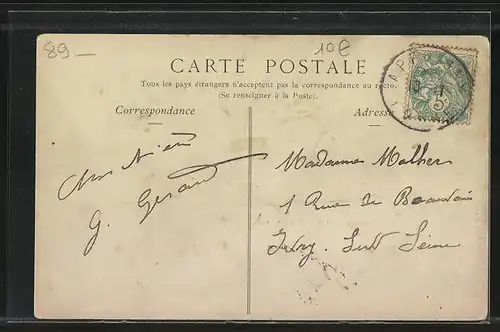 89 –
10€
CARTE POSTALE
Tous les pays étrangers n'acceptent pas la correspondance au recto.
(Se renseigner à la Poste).
Correspondance
Adresse
G. Geraud
Madame Malher
1 Rue de Beauvais
Ivry. Sur Seine